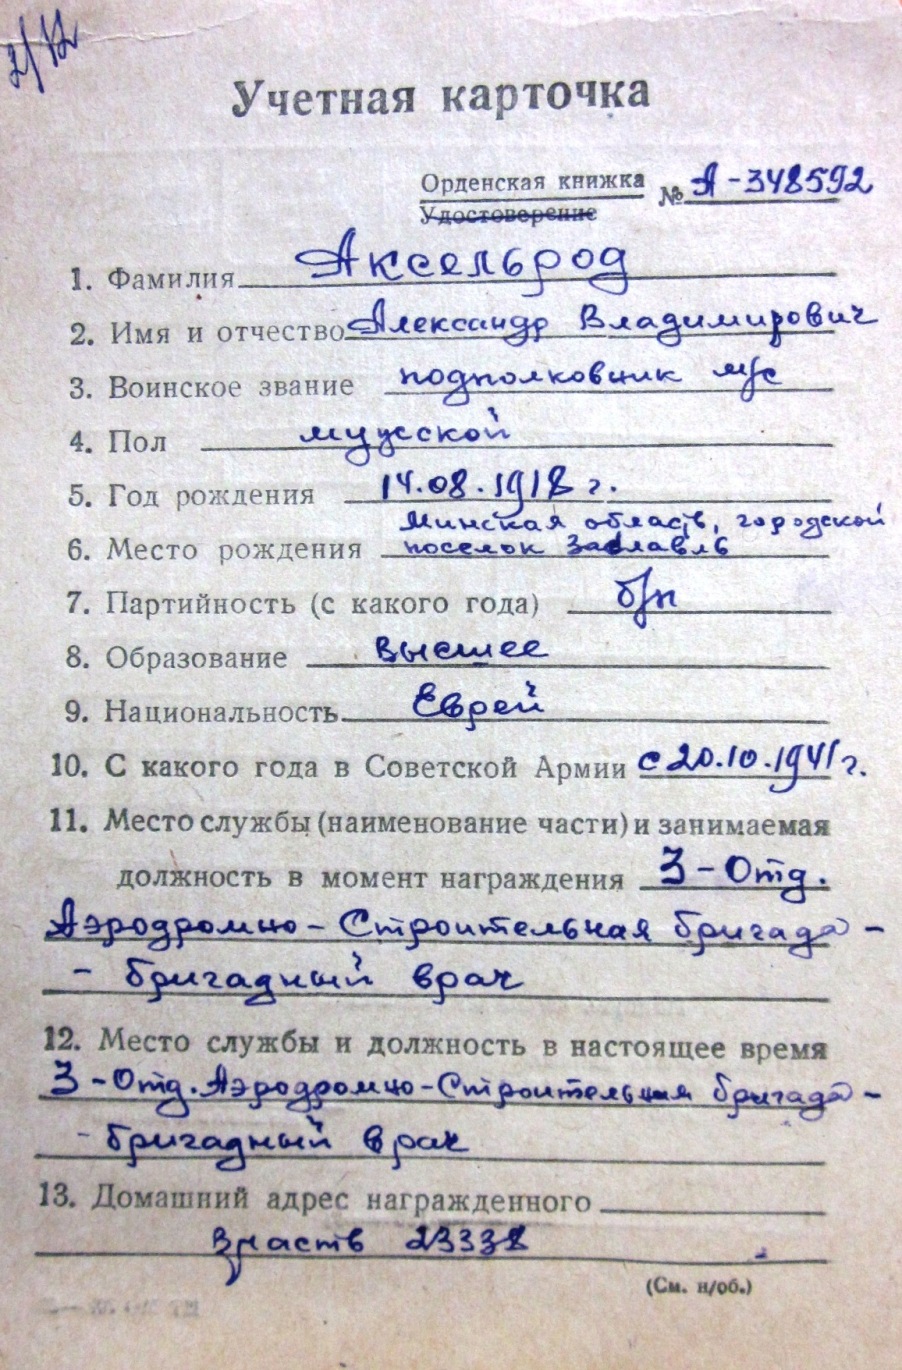 2/12
Учетная карточка
Орденская книжка № А-348592
Удостоверение
1. Фамилия Аксельрод
2. Имя и отчество Александр Владимирович
3. Воинское звание подполковник м/с
4. Пол мужской
5. Год рождения 14.08.1918 г.
Минская область, городской
6. Место рождения поселок Заславль
7. Партийность (с какого года) б/п
8. Образование высшее
9. Национальность Еврей
10. С какого года в Советской Армии с 20.10.1941 г.
11. Место службы (наименование части) и занимаемая
должность в момент награждения 3-Отд.
Аэродромно-Строительная бригада -
- бригадный врач
12. Место службы и должность в настоящее время
3-Отд. Аэродромно-Строительная бригада -
- бригадный врач
13. Домашний адрес награжденного
в/часть 23338
(См. н/об.)